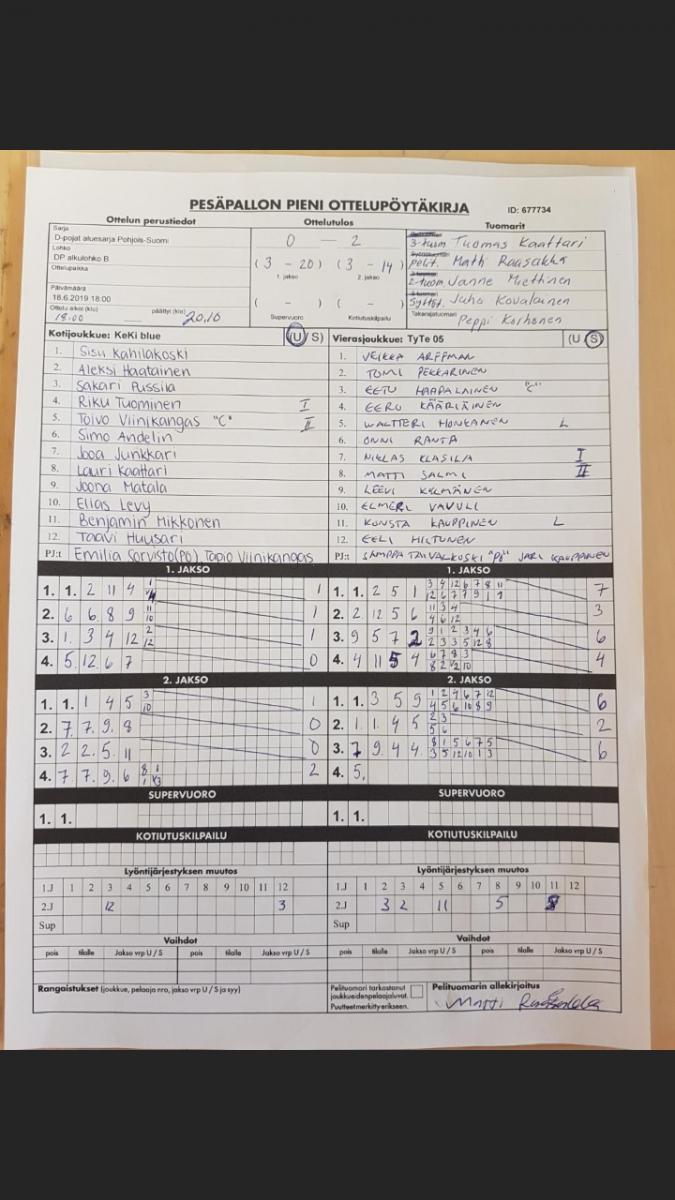 PESÄPALLON PIENI OTTELUPÖYTÄKIRJA
ID: 677734
Ottelun perustiedot
Ottelutulos
Tuomarit
Sarja
D-pojat aluesarja Pohjois-Suomi
Lohko
DP alkulohko B
Ottelupaikka
Päivämäärä
18.6.2019 18:00
Ottelu alkoi (klo) päättyi (klo)
18.00 20.10
0 — 2
(3 - 20) (3 - 14)
1. jakso 2. jakso
( - ) ( - )
Supervuoro Kotiutuskilpailu
3-tuom Tuomas Kaattari
pelit. Matti Raasakka
2-tuom. Janne Miettinen
Syttöt. Juha Kovalainen
Takarajatuomari
Peppi Korhonen
Kotijoukkue: KeKi blue (U/S)
1. Sisu Kahilakoski
2. Aleksi Haatainen
3. Sakari Pussila
4. Riku Tuominen I
5. Toivo Viinikangas "C" II
6. Simo Andelin
7. Jooa Junkkari
8. Lauri Kaattari
9. Joona Matala
10. Elias Levy
11. Benjamin Mikkonen
12. Taavi Huusari
PJ:t Emilia Sorvisto(PO) Tapio Viinikangas
Vierasjoukkue: TyTe 05 (U/S)
1. VEIKKA ARFFMAN
2. TOMI PEKKARINEN
3. EETU HAAPALAINEN "C"
4. EERO KÄÄRIÄINEN
5. WALTTERI HONKANEN L
6. ONNI RANTA
7. NIKLAS KLASILA I
8. MATTI SALMI II
9. LEEVI KYLMÄNEN
10. ELMERI VAVULI
11. KONSTA KAUPPINEN L
12. EELI HILTUNEN
PJ:t SAMPPA TAIVALKOSKI "PJ" JARI KAUPPINEN
1. JAKSO
1. 1. 2 11 4 1
2. 6 6. 8 9 11 10 1
3. 1. 3 4 12 2 12 1
4. 5. 12 6 7 0
2. JAKSO
1. 1. 1 4 5 3 10 1
2. 7. 7. 9. 8 0
3. 2 2. 5. 11 0
4. 7 7. 9. 6 2
SUPERVUORO
1. 1.
KOTIUTUSKILPAILU
1. JAKSO
1. 1. 2 5 1 7
2. 2 12 5 6 3
3. 9 5 7 2 6
4. 4 11 5 4 4
2. JAKSO
1. 1. 3 5 9 6
2. 1. 1. 4 5 2
3. 7 9 4 4 6
4. 5.
SUPERVUORO
1. 1.
KOTIUTUSKILPAILU
Lyöntijärjestyksen muutos
1.J 1 2 3 4 5 6 7 8 9 10 11 12
2.J 12 3
Sup
Vaihdot
pois tilalle Jakso vrp U / S pois tilalle Jakso vrp U / S
Lyöntijärjestyksen muutos
1.J 1 2 3 4 5 6 7 8 9 10 11 12
2.J 3 2 11 5 8
Sup
Vaihdot
pois tilalle Jakso vrp U / S pois tilalle Jakso vrp U / S
Rangaistukset (joukkue, pelaaja nro, jakso vrp U / S ja syy)
Pelituomari tarkastanut
joukkueidenpelaajaluvat.
Puutteetmerkittyerikseen.
Pelituomarin allekirjoitus
Matti